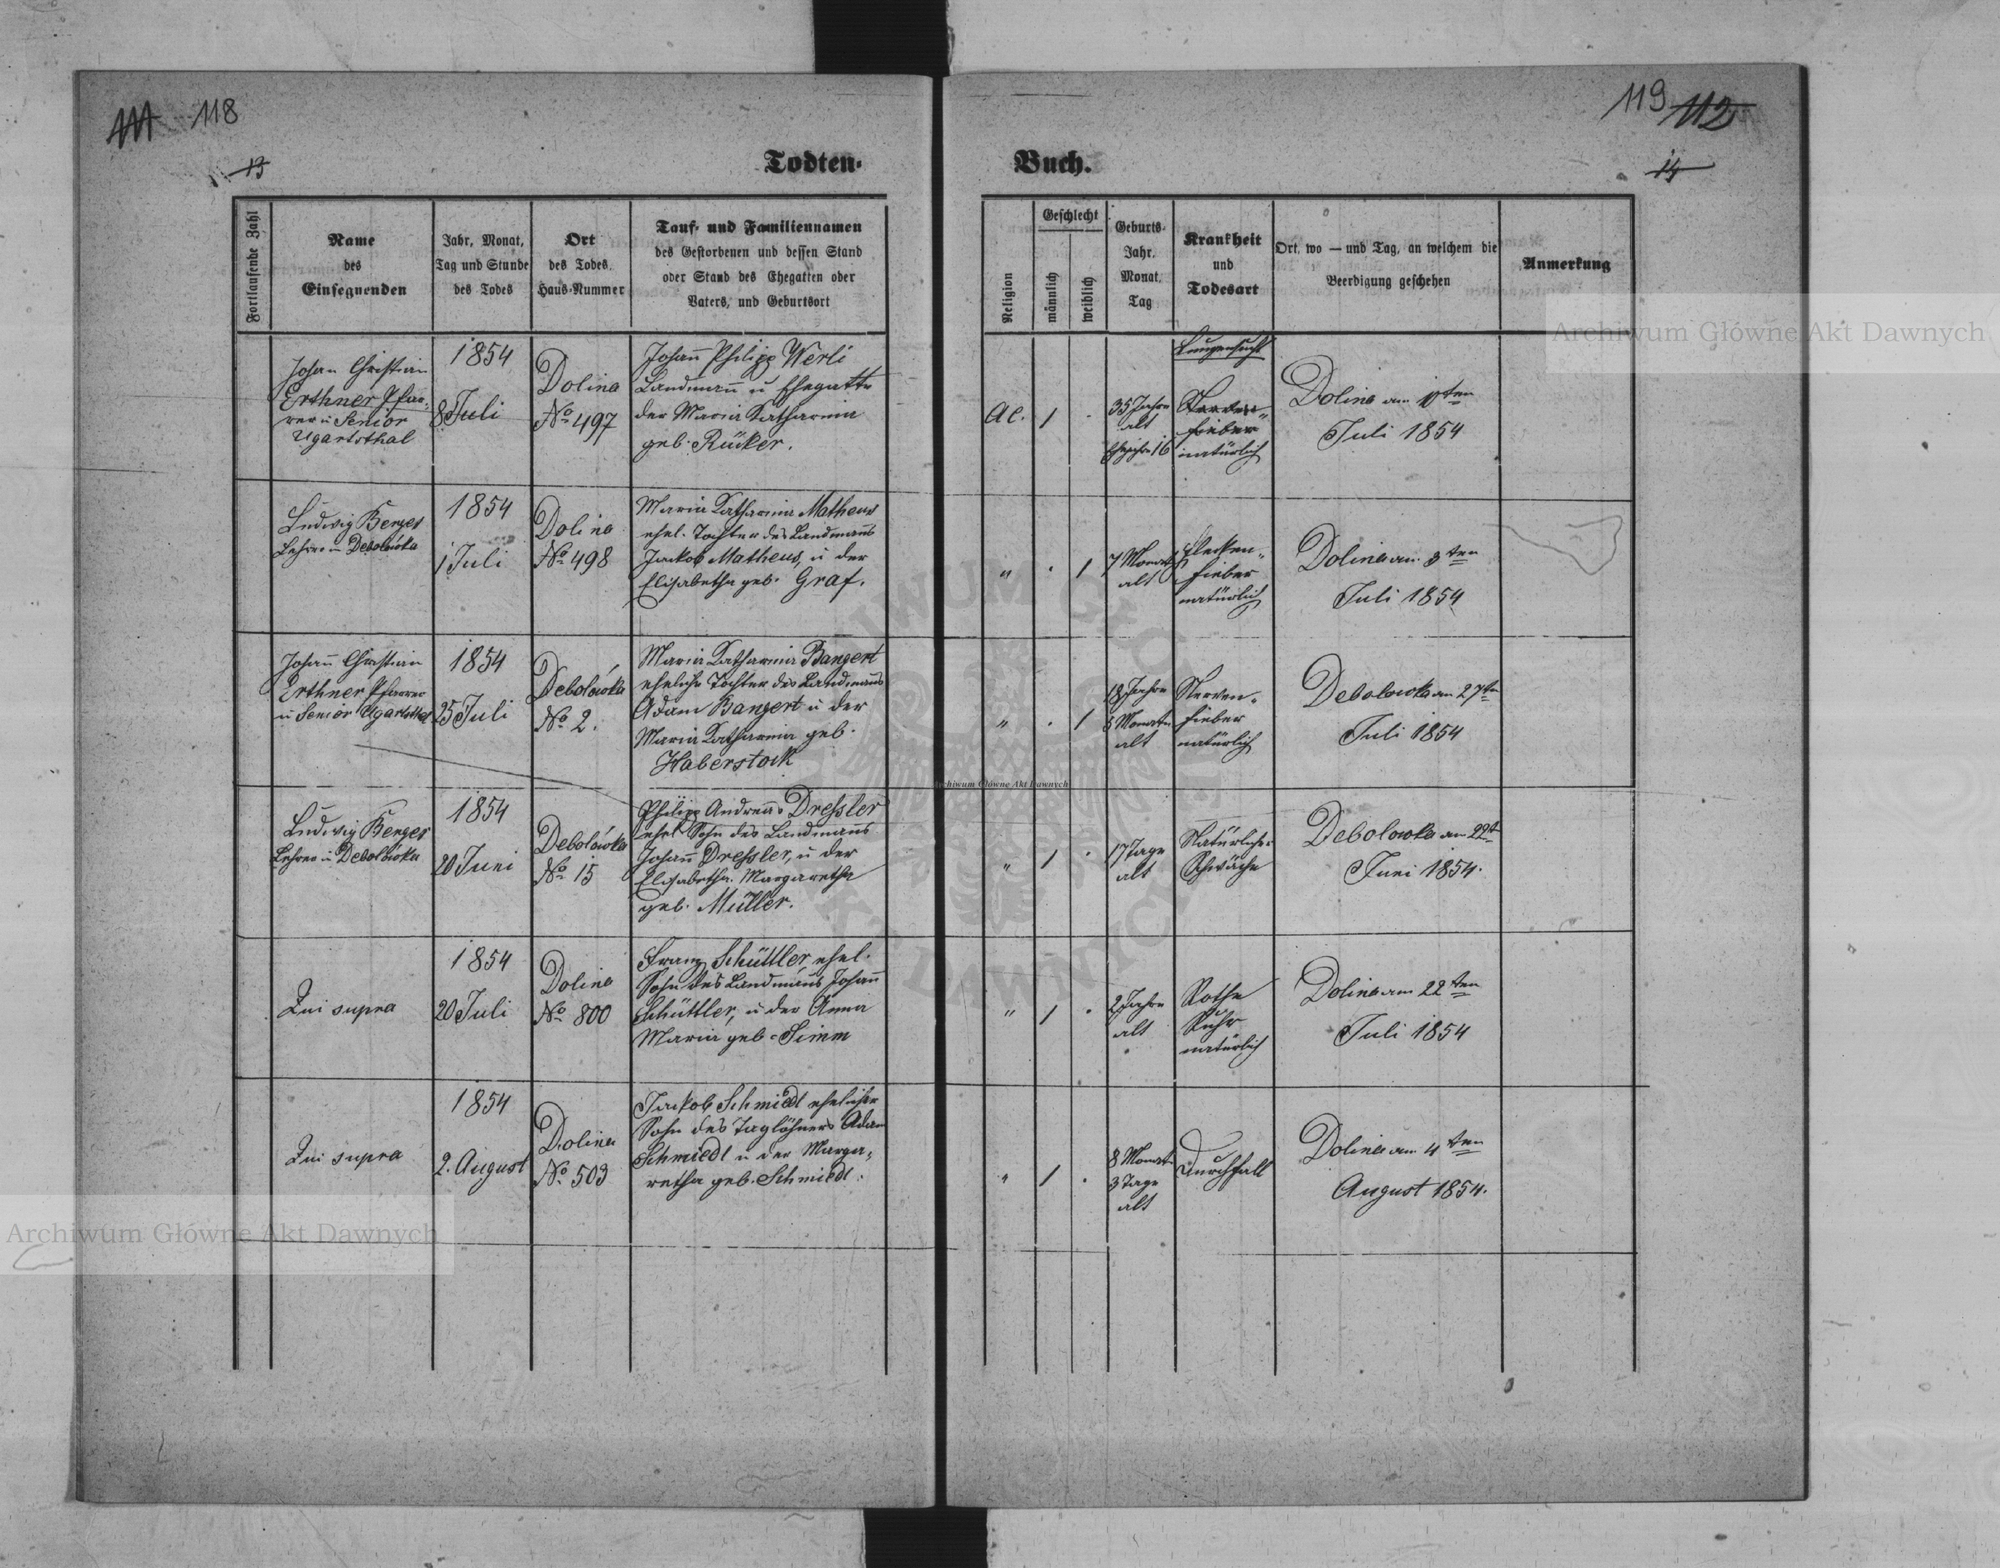 111 118
119 112
13
Todten-
Buch.
14
Fortlaufende Zahl
Name
des
Einsegnenden
Jahr, Monat,
Tag und Stunde
des Todes
Ort
des Todes.
Haus-Nummer
Tauf- und Familiennamen
des Gestorbenen und dessen Stand
oder Stand des Ehegatten oder
Vaters, und Geburtsort
Religion
Geschlecht
männlich
weiblich
Geburts-
Jahr.
Monat.
Tag
Krankheit
und
Todesart
Ort, wo — und Tag, an welchem die
Beerdigung geschehen
Anmerkung
Johan Christian
Erthner Pfar-
rer u Senior
Ugartsthal
1854
8 Juli
Dolina
No 497
Johann Philipp Werli
Landmann u Ehegatte
der Maria Katharina
geb. Rücker.
AC. 1 .
35 Jahre
alt
Ehejahre 16
Lungensucht
Nerven-
fieber
natürlich
Dolina am ten
Juli 1854
Ludwig Kenzes
Lehrer in Debolówka
1854
1 Juli
Dolina
No 498
Maria Katharina Matheus
ehel. Tochter des Landmanns
Jackob Matheus, u der
Elisabetha geb. Graf.
" . 1
7 Monate
alt
Flecken-
fieber
natürlich
Dolina am 3ten
Juli 1854
Johann Christian
Erthner Pfarrer
u Senior Ugartsthal
1854
25 Juli
Debolówka
No 2.
Maria Katharina Bangert
eheliche Tochter des Landmanns
Adam Bangert u der
Maria Katharina geb.
Haberstock
" . 1
18 Jahre
8 Monate
alt
Nerven-
fieber
natürlich
Debolowka am 27ten
Juli 1854
Ludwig Kenzes
Lehrer in Debolówka
1854
20 Juni
Debolówka
No 15
Philipp Andreas Dreßler
ehel Sohn des Landmanns
Johann Dreßler, u der
Elisabetha Margaretha
geb. Müller.
" 1 .
17 Tage
alt
Natürliche
Schwäche
Debolowka am 22t
Juni 1854.
Qui supra
1854
20 Juli
Dolina
No 800
Franz Schüttler, ehel.
Sohn des Landmanns Johann
Schüttler, u der Anna
Maria geb. Simm
" 1 .
2 Jahre
alt
Rothe
Ruhr
natürlich
Dolina am 22ten
Juli 1854
Qui supra
1854
2. August
Dolina
No 503
Jackob Schmiedl ehelicher
Sohn des Taglöhners Adam
Schmiedl u der Marga-
retha geb. Schmiedl.
" 1 .
8 Monate
3 Tage
alt
Durchfall
Dolina am 4ten
August 1854.
Archiwum Główne Akt Dawnych
Archiwum Główne Akt Dawnych
Archiwum Główne Akt Dawnych